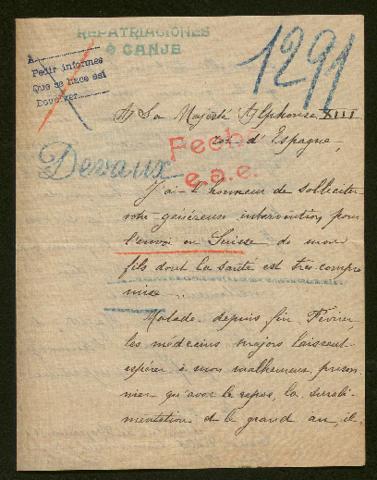 REPATRIACIONES
O CANJE
A
Pedir informes
Que se hace así
Dovercer
1291
A Sa Majesté Alphonse XIII
roi d'Espagne,
Devaux
Fecho
e.a.e.
J'ai l'honneur de solliciter
votre généreuse intervention pour
l'envoi en Suisse de mon
fils dont la santé est très compro
mise.
Malade depuis fin Février,
les médecins majors laissent
espérer à mon malheureux prison
nier qu'avec le repos, la surali-
mentation et le grand air, il